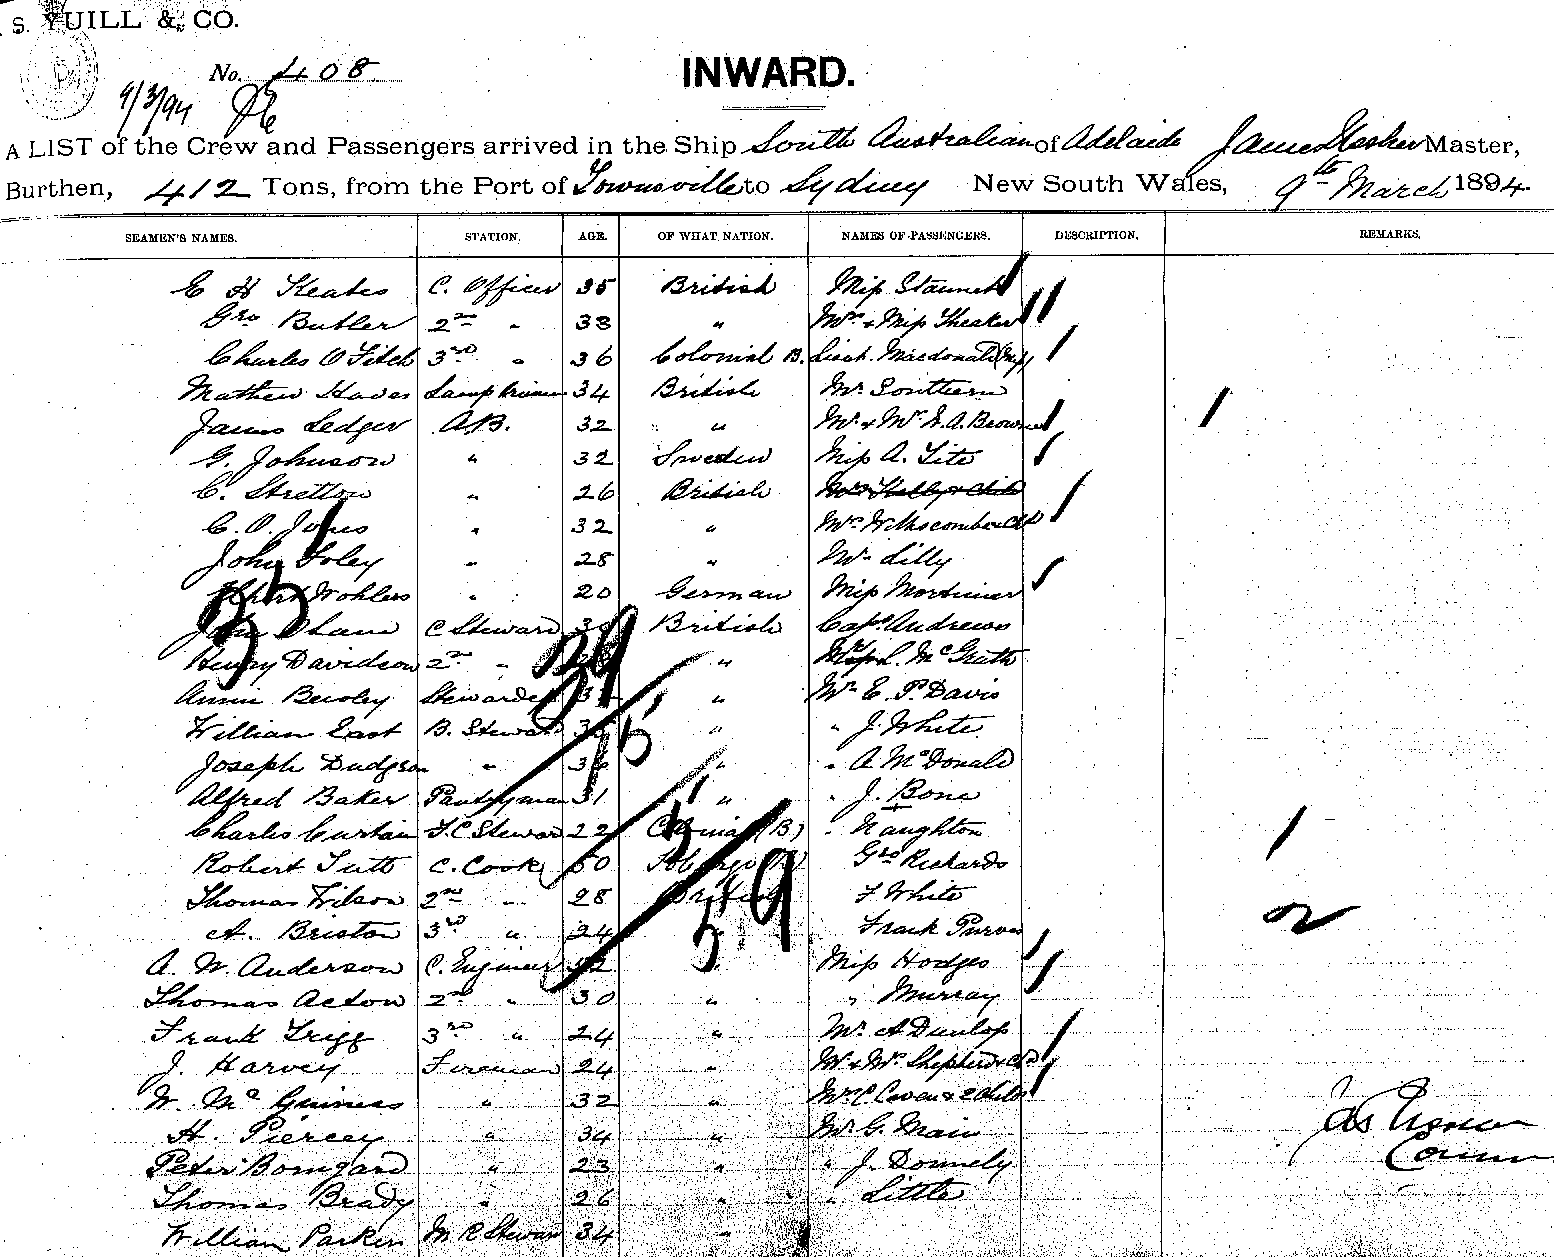 S. YUILL & CO.
No. 408
9/3/94
INWARD.
A LIST of the Crew and Passengers arrived in the Ship South Australian of Adelaide James Master,
Burthen, 412 Tons, from the Port of Townsville to Sydney New South Wales, 9th March 1894
SEAMEN'S NAMES. STATION. AGE. OF WHAT NATION. NAMES OF PASSENGERS. DESCRIPTION. REMARKS.
E H Keates C. Officer 35 British Miss Staunch
Geo Butler 2nd " 33 " Mrs & Miss Theaker
Charles O Fitch 3rd " 36 Colonial B. Lieut. Macdonald
Mathew Hawes Lamp trimmer 34 British Mr Southern
James Ledger A.B. 32 " Mr & Mrs A. Brown
G. Johnson " 32 Sweden Miss A. Tite
C. Stretton " 26 British
C. O. Jones " 32 "
John Foley " 28 " Mr Lilly
Wohlers " 20 German Miss Mortimer
John C Steward British Capt Andrews
Henry Davidson 2nd " " L. McGrath
Annie Stewardess " Mr E. P. Davis
William East B. Steward " " J. White
Joseph Dudgeon " " " A McDonald
Alfred Baker Pantryman 31 " " J. Bone
Charles Curtain F.C Steward 22 Colonial (B) " Naughton
Robert Tutt C. Cook 50 Geo Rickards
Thomas Wilson 2nd " 28 British F White
A. Briston 3rd " 24 " Frank Purves
A. W. Anderson C. Engineer " Miss Hodges
Thomas Acton 2nd " 30 " " Murray
Frank Trigg 3rd " 24 " Mr A Dunlop
J. Harvey Fireman 24 " Mr & Mrs Shepherd & Ch
W. McGuiness " 32 " Mrs C Caven & 2 Child
H. Piercey " 34 " Mr G. Main
Peter " 23 " " J. Donnely
Thomas Brady " 26 " " Little
William Parker M R Steward 34 "